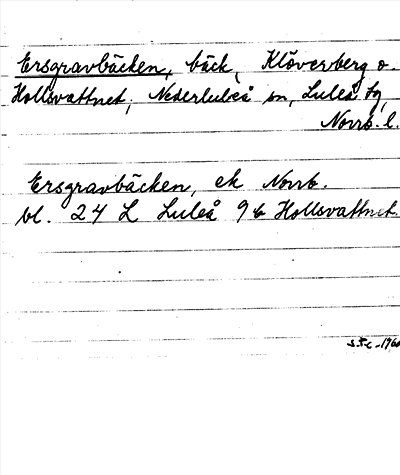 Ersgravbäcken, bäck, Klöverberg o.
Hollsvattnet, Nederluleå sn, Luleå tg,
Norrb. l.
Ersgravbäcken, ek Norrb.
bl. 24 L Luleå 9 b Hollsvattnet